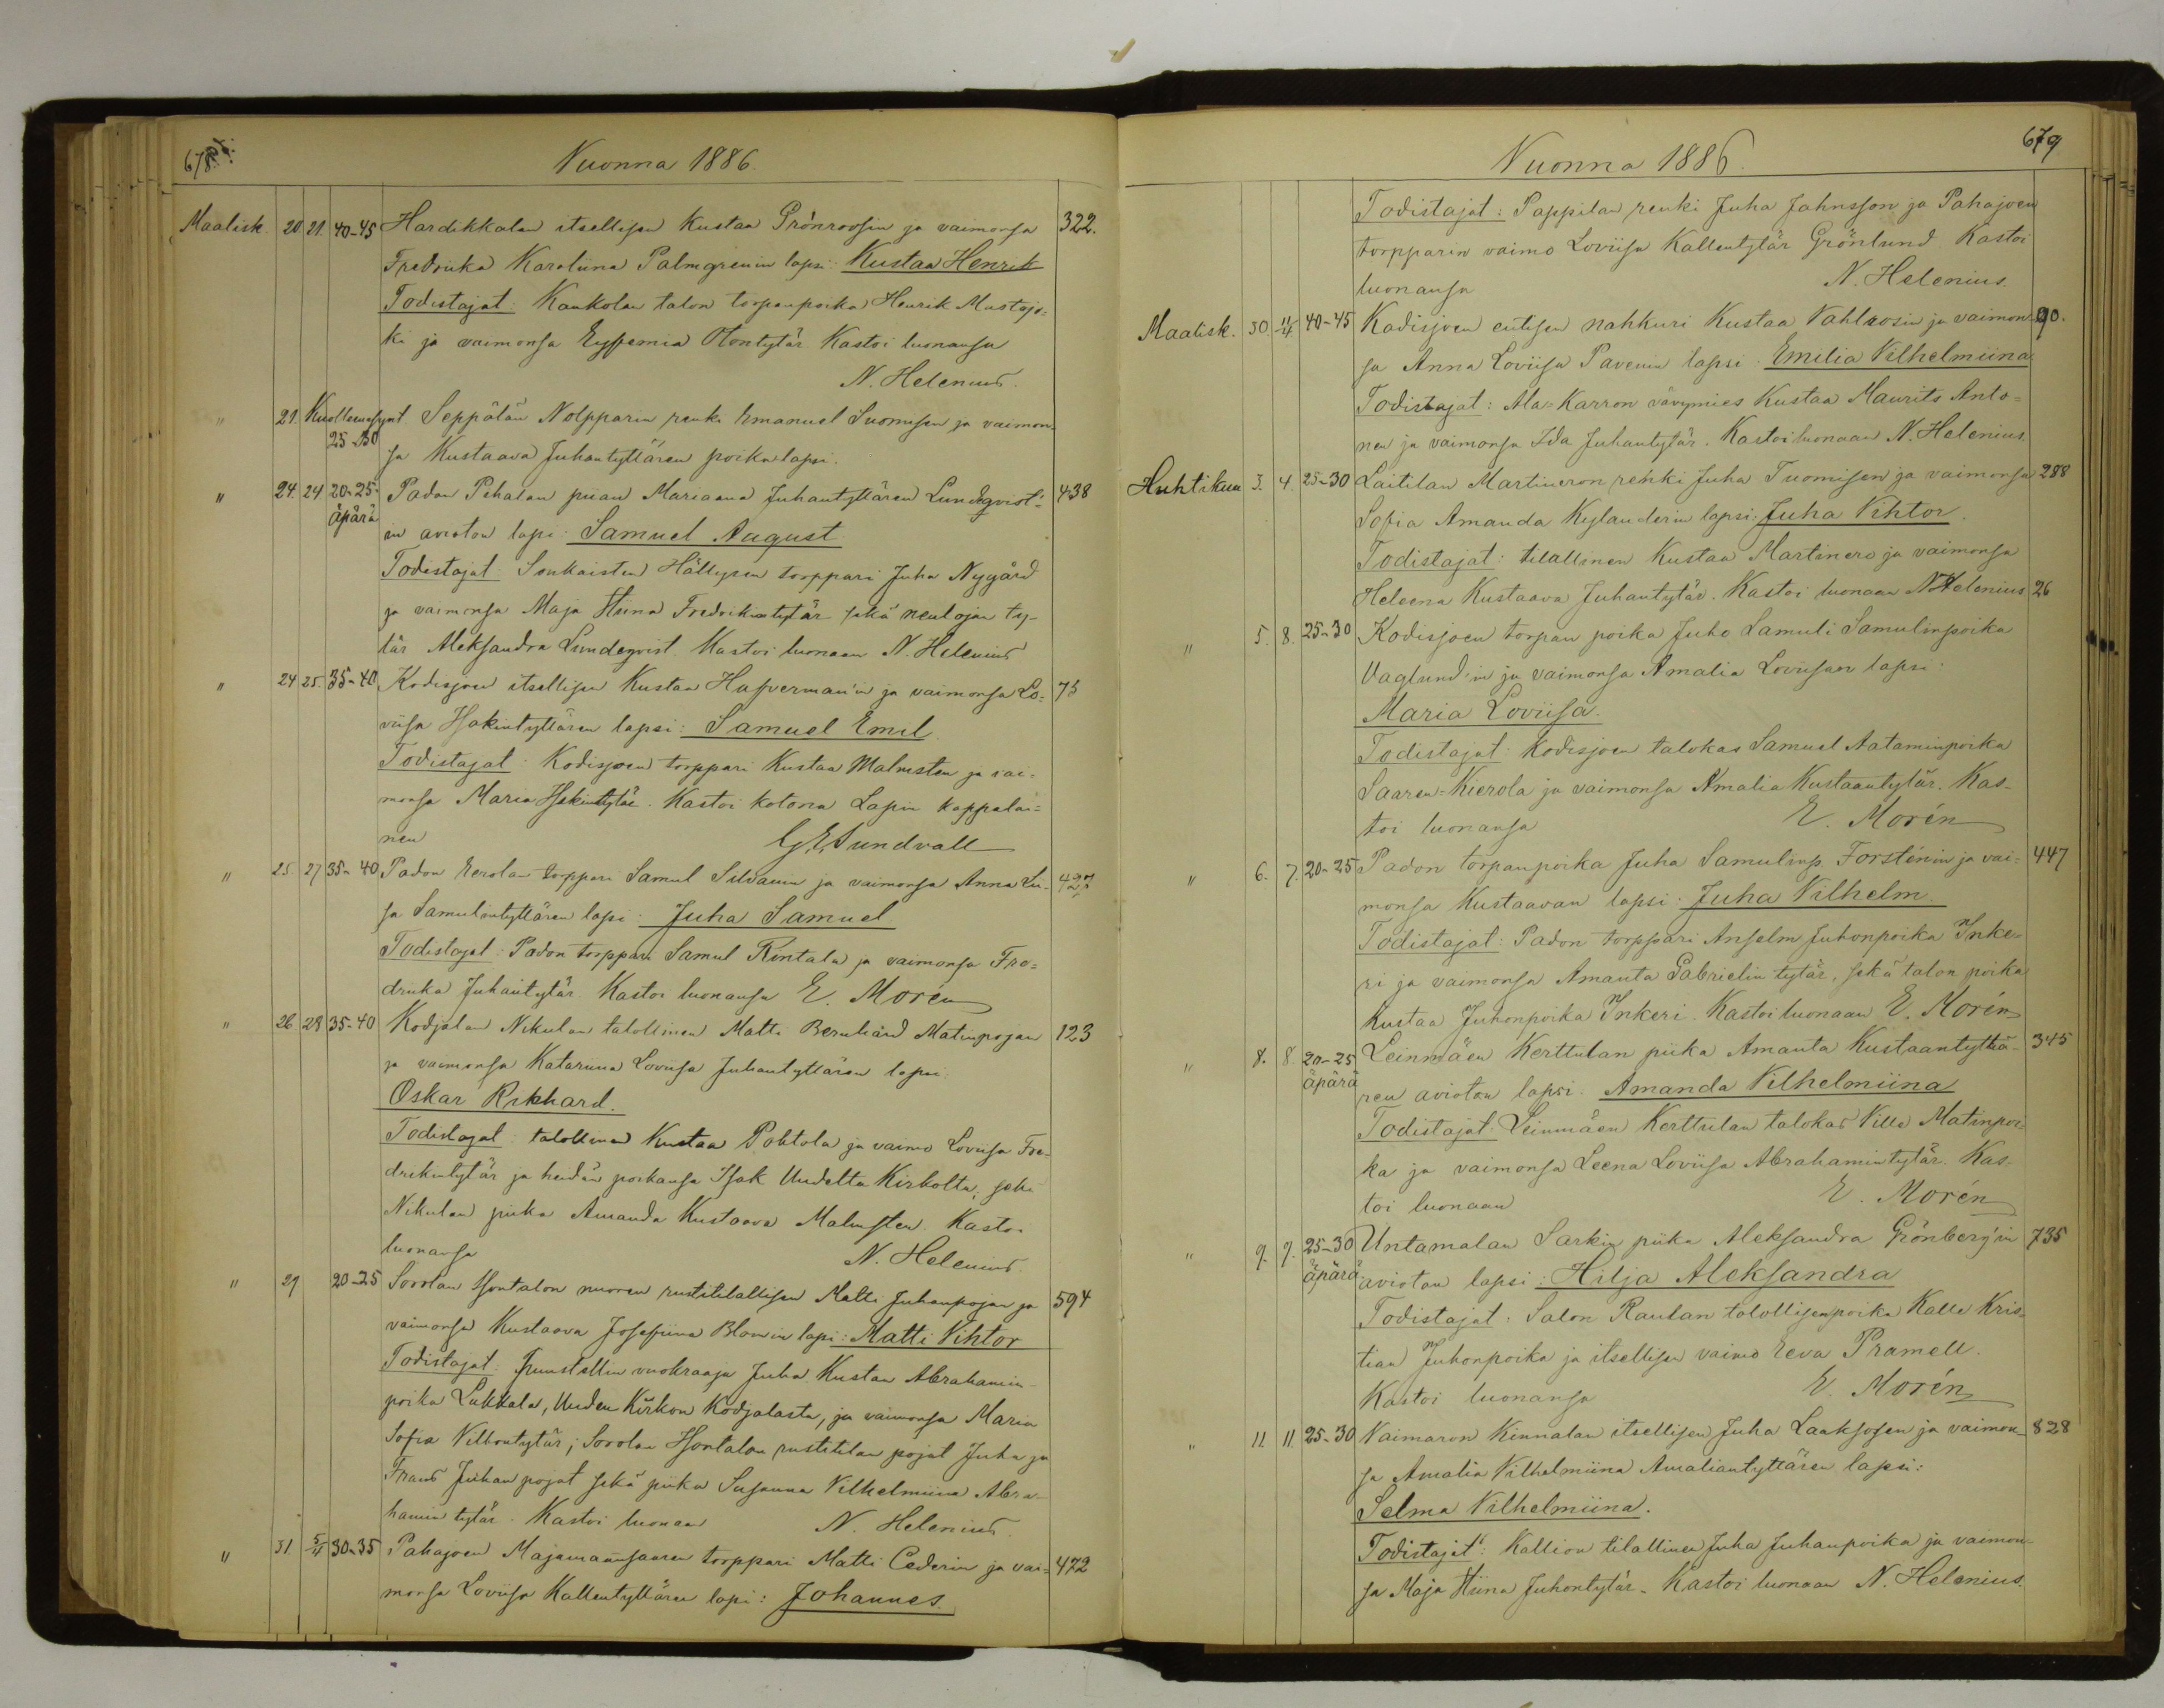 678.
Nuonna 1886.
Maalisk. 20. 21. 40-45 Hardikkalan itsellisen Kustaa Grönroosin ja vaimonsa 322.
Fredrika Karoliina Palmgrenin lapsi: Kustaa Henrik
Todistajat: Kaukolan talon torpanpoika Henrik Mustajo=
ki ja vaimonsa Eufemia Otontytär Kastoi luonansa
N. Helenius.
" 21. Kuollenasynt. Seppälän Nolpparin renki Emanuel Suomisen ja vaimon=
25-30 sa Kustaava Juhantyttären poikalapsi.
" 24. 24 20-25 Padon Pihalan piian Mariaana Juhantyttären Lundeqvist'= 438
äpärä in avioton lapsi: Samuel August
Todistajat: Sonkaisten Hällysen torppari Juha Nygård
ja vaimonsa Maja Stiina Fredrikintytär sekä neulojan ty-
tär Aleksandra Lundeqvist. Kastoi luonaan N. Helenius
" 24 25. 35-40 Kodisjoen itsellisen Kustaa Hafverman'in ja vaimonsa Lo= 75
viisa Isakintyttären lapsi: Samuel Emil
Todistajat: Kodisjoen torppari Kustaa Malmsten ja vai-
monsa Maria Isakintytär. Kastoi kotona Lapin kappalai=
nen G. E. Sundvall
" 25. 27 35-40 Padon Eerolan torppari Samul Silvanin ja vaimonsa Anna Lii-
sa Samulintyttären lapsi: Juha Samuel
Todistajat: Padon torppari Samul Rintala ja vaimonsa Fre=
drika Juhantytär Kastoi luonansa E. Morén
" 26 28 35-40 Kodjalan Nikulan talollinen Matti Bernhard Matinpojan 123
ja vaimonsa Katariina Loviisa Juhantyttären lapsi:
Oskar Rikhard.
Todistajat: talollinen Kustaa Pohtola ja vaimo Loviisa Fre-
drikintytär ja heidän poikansa Isak Uudelta Kirkolta, sekä
Nikulan piika Amanda Kustaava Malmsten. Kastoi
luonansa N. Helenius.
" 29 20-25 Sorolan Isontalon nuoren rustitilallisen Matti Juhanpojan ja 594
vaimonsa Kustaava Josefiina Blomin lapsi: Matti Vihtor
Todistajat: Puustellin vuokraaja Juha Kustaa Abrahamin-
poika Lukkala, Uuden Kirkon Kodjalasta, ja vaimonsa Maria
Sofia Vilhontytär; Sorolan Isontalon rustitilan pojat Juha ja
Frans Juhanpojat sekä piika Susanna Vilhelmiina Abra-
hamintytär. Kastoi luonaan N. Helenius.
" 31. 5/4 30-35 Pahajoen Majamaansaaren torppari Matti Cederin ja vai= 472
monsa Loviisa Kallentyttären lapsi: Johannes.
679
Nuonna 1886.
Todistajat: Pappilan renki Juha Jahnsson ja Pahajoen
torpparin vaimo Loviisa Kallentytär Grönlund. Kastoi
luonansa N. Helenius.
Maalisk. 30. 11/4 40-45 Kodisjoen entisen nahkuri Kustaa Vahlrosin ja vaimon= 90.
sa Anna Loviisa Pavenin lapsi: Emilia Vilhelmiina
Todistajat: Ala-Karron sävymies Kustaa Maurits Anto=
nen ja vaimonsa Ida Juhantytär. Kastoi luonaan N. Helenius.
Huhtikuu 3. 4. 25-30 Laitilan Martineron renki Juha Tuomisen ja vaimonsa 288
Sofia Amanda Kylanderin lapsi: Juha Vihtor.
Todistajat: tilallinen Kustaa Martinero ja vaimonsa
Heleena Kustaava Juhantytär. Kastoi luonaan N. Helenius 26
" 5. 8. 25-30 Kodisjoen torpan poika Juho Samuli Samulinpoika
Vaglund'in ja vaimonsa Amalia Loviisan lapsi:
Maria Loviisa.
Todistajat: Kodisjoen talokas Samuel Aataminpoika
Saaren-Kierola ja vaimonsa Amalia Kustaantytär. Kas-
toi luonansa E. Morén
" 6. 7. 20-25 Padon torpanpoika Juha Samulinp. Forsténin ja vai= 447
monsa Kustaavan lapsi: Juha Vilhelm.
Todistajat: Padon torppari Anselm Juhonpoika Inke-
ri ja vaimonsa Amanta Gabrielin tytär, sekä talon poika
Kustaa Juhonpoika Inkeri. Kastoi luonaan E. Morén
" 8. 8. 20-25 Leinmäen Kerttulan piika Amanta Kustaantyttä- 345
äpärä ren avioton lapsi: Amanda Vilhelmiina
Todistajat: Leinmäen Kerttulan talokas Ville Matinpoi-
ka ja vaimonsa Leena Loviisa Abrahamintytär. Kas-
toi luonaan E. Morén
" 9. 9. 25-30 Untamalan Sarkin piika Aleksandra Grönberg'in 735
äpärä avioton lapsi: Hilja Aleksandra
Todistajat: Salon Raulan talollisenpoika Kalle Kris-
tian Juhonpoika ja itsellisen vaimo Eeva Pramell.
Kastoi luonansa E. Morén
" 11. 11. 25-30 Vaimaron Kinnalan itsellisen Juha Laaksosen ja vaimon- 828
sa Amalia Vilhelmiina Amaliantyttären lapsi:
Selma Vilhelmiina.
Todistajat: Kallion tilallinen Juha Juhanpoika ja vaimon-
sa Maja Stiina Juhontytär. Kastoi luonaan N. Helenius.